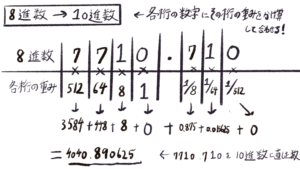 8進数 → 10進数 ← 各桁の数字にその桁の重みをかけ算して合わせる!
8進数 7 7 1 0 . 7 1 0
× × × × × × ×
各桁の重み 512 64 8 1 1/8 1/64 1/512
↓ ↓ ↓ ↓ ↓ ↓ ↓
3584 + 448 + 8 + 0 + 0.875 + 0.015625 + 0
= 4040.890625 ← 7710.710を10進数に直した数